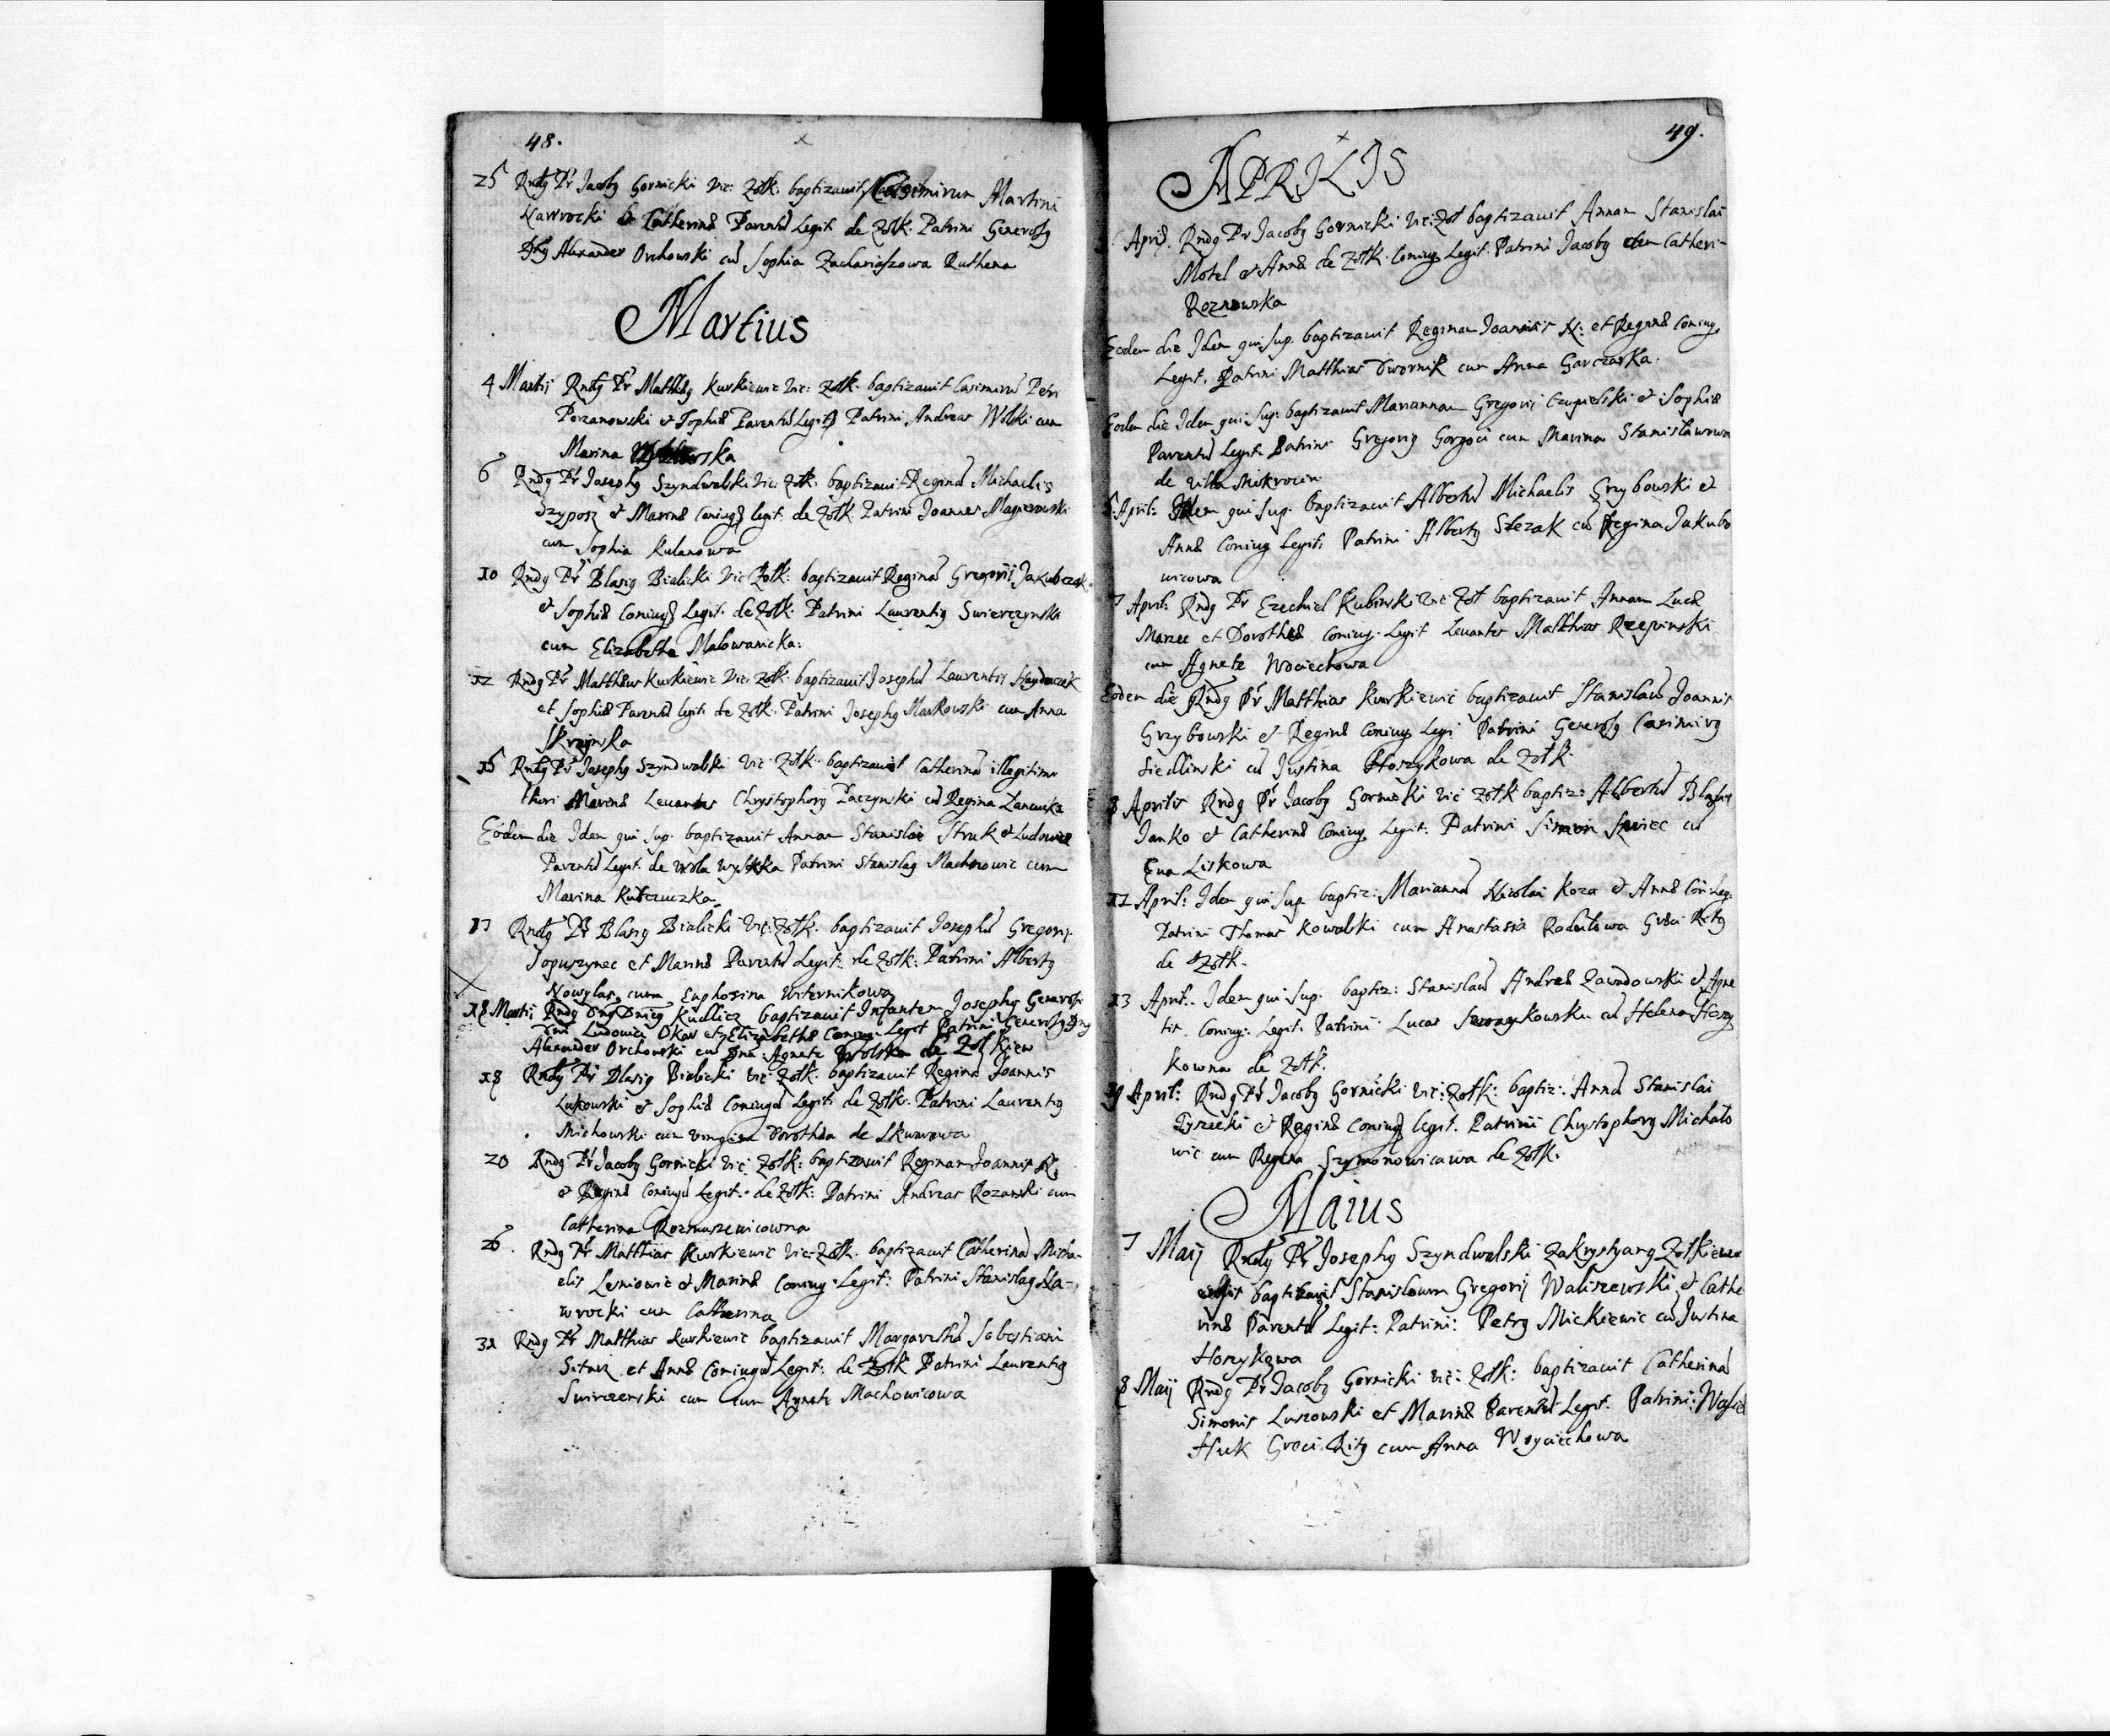 48.
25 Rndg Pr Jacobg Gornicki Vic: Zołk: baptizavit Casimirum Martini
Nawrocki & Catherinæ Parentū Legit: de Zołk: Patrini Generosg
Dng Alexander Orchowski cū Sophia Zachariaszowa Ruthena
Martius
4 Martij Rndg Pr Matthæg Kurkiewic Vic: Zołk: baptizavit Casimirū Petri
Pezanowski et Sophiæ Parentū Legit Patrini Andreas Wolski cum
Marina
6 Rndg Pr Josephg Szyndwalski Vic: Zołk: baptizavit Reginā Michaelis
Szyposz et Marinæ Coniugū legit: de Zołk: Patrini Joannes Magierowski
cum Sophia Kulanowa
10 Rndg Pr Blasig Bialicki Vic Zołk: baptizavit Reginā Gregorij Jakubczak
et Sophiæ Coniugū Legit: de Zołk: Patrini Laurentig Swierczynski
cum Elizabetha Malowanicka:
12 Rndg Pr Matthæus Kurkiewic Vic: Zołk: baptizavit Josephū Laurentij Haydaczek
et Sophiæ Parentū legit: de Zołk: Patrini Josephg Markowski cum Anna
Skrzynska
15 Rndg Pr Josephg Szyndwalski Vic: Zołk: baptizavit Catherinā illegitimi
thori Marinæ Levantes Chrystophorg Paczynski cū Regina Lancucka
Eodem die Idem qui sup. baptizavit Annam Stanislai Struk et Ludovicæ
Parentū Legit: de Wola Wysocka Patrini Stanislag Machnowic cum
Marina Kutczuczka
17 Rndg Pr Blasig Bialicki Vic: Zołk: baptizavit Josephū Gregorij
Sopuszynec et Marinæ Parentū Legit: de Zołk: Patrini Albertg
Nowylas, cum Euphosina Witernikowa
18 Martij Rndg Dng Dnicg Kudlicz baptizavit Infantem Josephg Generosi
Dni Ludovici Okar et Elizabethæ Coniug: Legit Patrini Generosg Dng
Alexander Orchowski cū Dna: Agnete Wolska de Zołkiew
18 Rndg Pr Blasig Bielicki Vic Zołk: baptizavit Reginā Joannis
Lukowski et Sophiæ Coniugū Legit: de Zołk: Patrini Laurentig
Michowski cum virgine Dorothea de Skwarowa
20 Rndg Pr Jacobg Gornicki Vic: Zołk: baptizavit Reginam Joannis N:
et Reginæ Coniugū Legit: de Zołk: Patrini Andreas Rozanski cum
Catherina Rozmuszewicowna
26. Rndg Pr Matthias Kurkiewic Vic: Zołk: baptizavit Catherinā Micha-
elis Lesniowic et Marinæ Coniug: Legit: Patrini Stanislag Na-
wrocki cum Catherina
31 Rndg Pr Matthias Kurkiewic baptizavit Margarethā Sebestiani
Sitarz et Annæ Coniugū Legit: de Zołk Patrini Laurentig
Swirczenski cum cum Agnete Machowicowa
49.
APRILIS
April. Rndg Pr Jacobg Gornicki Vic: Zoł baptizavit Annam Stanislai
Motel et Annæ de Zołk. Coniug Legit: Patrini Jacobg cum Catheri-
Roznowska
Eodem die Idem qui sup. baptizavit Reginam Joannis N: et Reginæ Coniug.
Legit. Patrini Matthias Dwornik cum Anna Garczarka.
Eodem die Idem qui sup: baptizavit Mariannam Gregorij et Sophiæ
Parentū Legit: Patrini Gregorig Gorgoci cum Marina Stanisławowa
de villa Mokrocin
5 April: Idem qui sup. baptizavit Albertū Michaelis Grzybowski et
Annæ Coniug Legit: Patrini Albertg Slezak cū Regina Jakubo
wicowa
7 April: Rndg Pr Ezechiel Kubinski Vic Zoł baptizavit Annam Lucæ
Marzec et Dorotheæ Coniug: Legit Levantes Matthias Rzepinski
cum Agnete Woiciechowa
Eodem die Rndg Pr Matthias Kurkiewic baptizavit Stanislaū Joannis
Grzybowski et Reginæ Coniug Legi: Patrini Generosg Casimirg
Siedlinski cū Justina Hoszykowa de Zołk.
8 Aprilis Rndg Pr Jacobg Gornicki Vic Zołk baptiz: Albertū Blasij
Janko et Catherinæ Coniug Legit: Patrini Simon Szwiec cū
Eva Liskowa
11 April: Idem qui sup baptiz: Mariannā Nicolai Koza et Annæ Con: Leg:
Patrini Thomas Kowalski cum Anastasia Rodułowa Græci Ritg
de Zołk.
13 April: Idem qui sup. baptiz: Stanislaū Andreæ Zawadowski et Agne
tis Coniug: Legit: Patrini: Lucas cū Helena Hoszy
kowna de Zołk.
19 April: Rndg Pr Jacobg Gornicki Vic: Zołk: baptiz: Annā Stanislai
Tyrecki et Reginæ Coniug legit. Patrini Chrystophorg Michało
wic cum Regina Szymonowicowa de Zołk.
Maius
7 Maij Rndg Pr Josephg Szyndwalski Zakrystyang Zołkiewi
ensis baptizavit Stanislaum Gregorij Waliszewski et Cathe
rinæ Parentū Legit: Patrini: Petrg Mickiewic cū Justina
Hoszykowa
8 Maij Rndg Pr Jacobg Gornicki Vic: Zołk: baptizavit Catherinā
Simonis Luszowski et Marinæ Parentū Legit: Patrini: Wasiel
Huk Græci Ritg cum Anna Woyciechowa